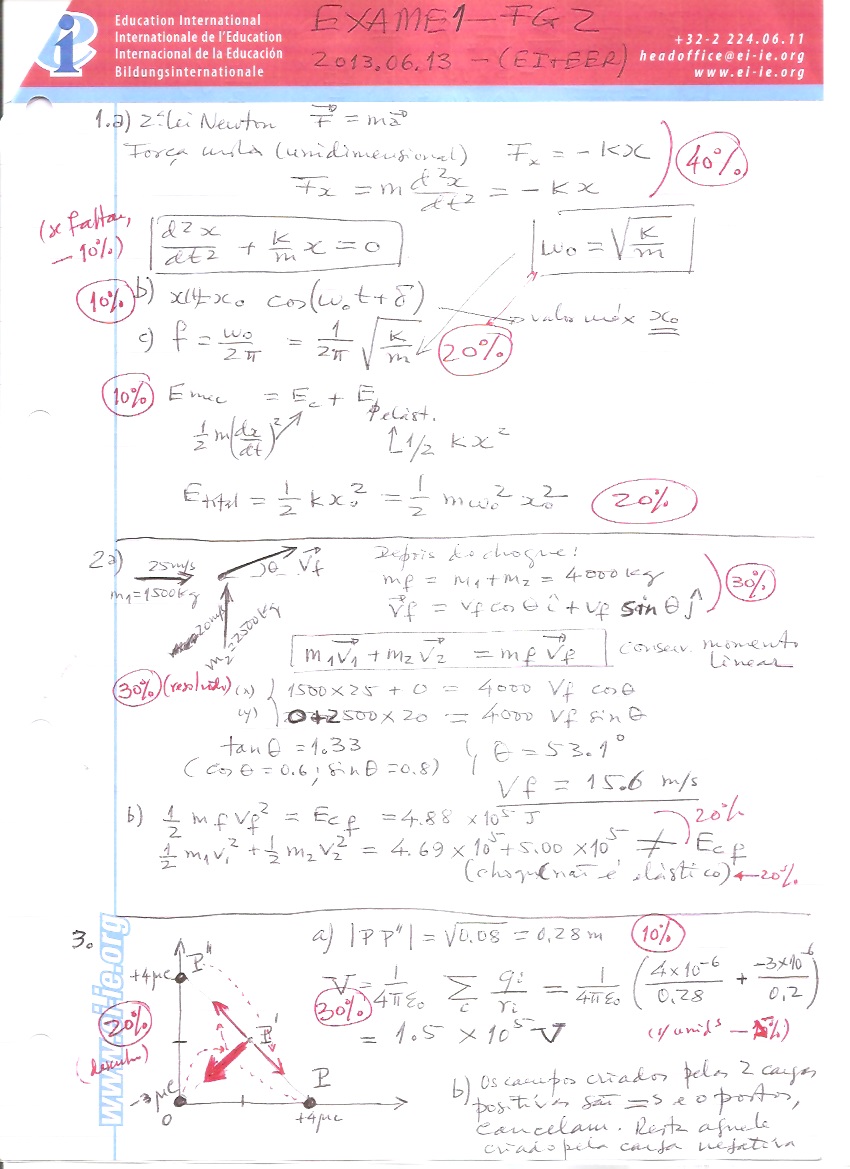 Education International
Internationale de l'Education
Internacional de la Educación
Bildungsinternationale
EXAME1 - FG2
2013.06.13 - (EI+EER)
+32-2 224.06.11
headoffice@ei-ie.org
www.ei-ie.org
1.a) 2ª Lei Newton F⃗ = ma⃗
Força mola (unidimensional) Fx = - Kx
40%
Fx = m d²x/dt² = - Kx
(se faltar, - 10%)
d²x/dt² + k/m x = 0
ω₀ = √(K/m)
10% b) x(t)=x₀ cos(ω₀t + δ)
valor máx x₀
c) f = ω₀/2π = 1/2π √(K/m)
20%
10% Emec = Ec + Ep elást.
1/2 m(dx/dt)² 1/2 Kx²
Etotal = 1/2 kx₀² = 1/2 mω₀² x₀² 20%
2a) 25m/s
m₁=1500kg
θ V⃗f
20m/s
m₂=2500kg
Depois do choque:
mf = m₁ + m₂ = 4000kg
v⃗f = vf cosθ î + vf sinθ ĵ
30%
m₁v⃗₁ + m₂v⃗₂ = mf v⃗f
conserv. momento
linear
30% (resolvido) (x) 1500×25 + 0 = 4000 Vf cosθ
(y) 0+2500×20 = 4000 Vf sinθ
tanθ = 1.33
(cosθ = 0.6; sinθ = 0.8)
θ = 53.1°
Vf = 15.6 m/s
b) 1/2 mf Vf² = Ecf = 4.88 ×10⁵ J
20%
1/2 m₁v₁² + 1/2 m₂v₂² = 4.69×10⁵ + 5.00×10⁵ ≠ Ecf
(choque não é elástico) ← 20%
www.ei-ie.org
3.
a) |PP"| = √0.08 = 0.28m 10%
+4μC P"
20%
(desenho)
P'
-3μC
0
P
+4μC
30%
V = 1/4πε₀ Σi qi/ri = 1/4πε₀ (4×10⁻⁶/0.28 + -3×10⁻⁶/0.2)
= 1.5 × 10⁵ V
b) Os campos criados pelas 2 cargas
positivas são =s e opostos,
cancelam. Resta aquele
criado pela carga negativa